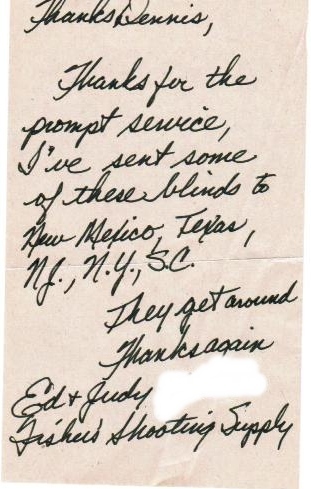 Thanks Dennis,
Thanks for the
prompt service,
I've sent some
of these blinds to
New Mexico, Texas,
NJ., N.Y., S.C.
They get around
Thanks again
Ed + Judy
Fisher's Shooting Supply